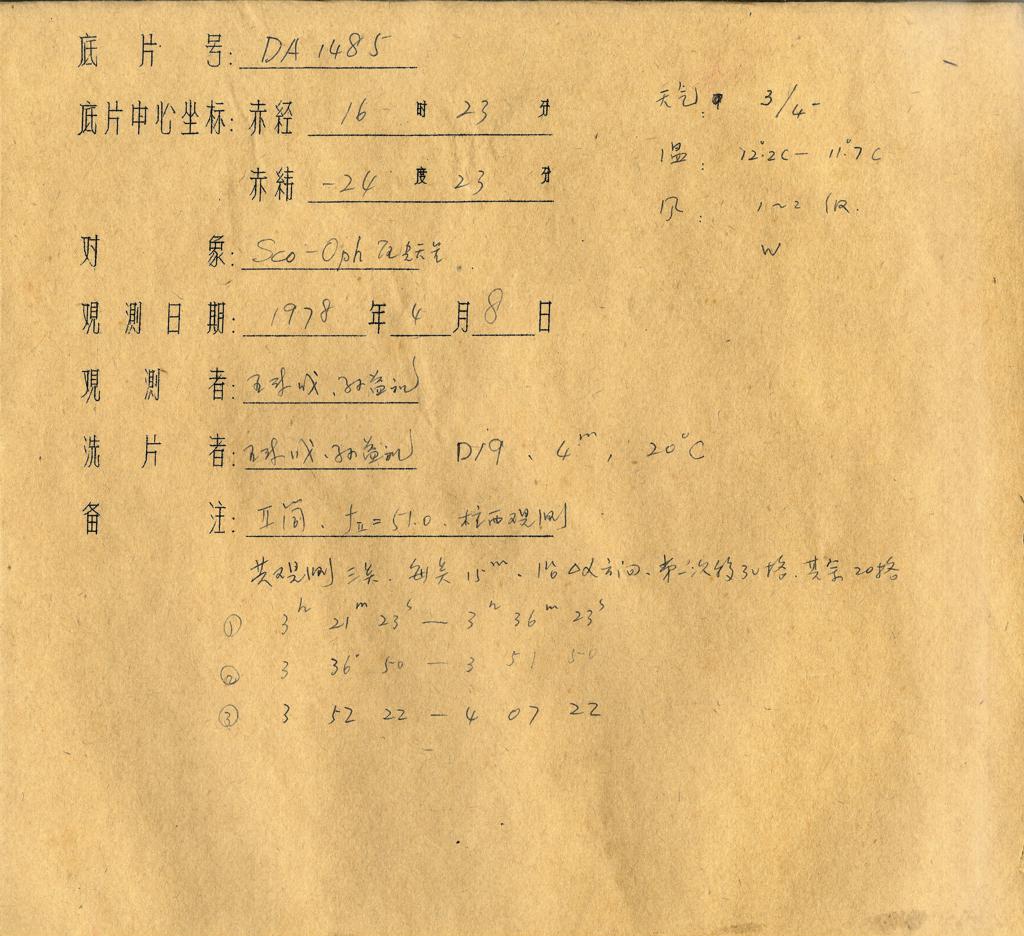 底片号: DA 1485
底片中心坐标: 赤经 16 时 23 分
赤纬 -24 度 23 分
对象: Sco-Oph 天
观测日期: 1978 年 4 月 8 日
观测者:
洗片者: D19、4ᵐ, 20°C
备注: II筒、fⅡ=51.0、柱西观测
共观测三类、每类15ᵐ、沿Δα方向、第二次移30格、其余20格
① 3ʰ 21ᵐ 23ˢ — 3ʰ 36ᵐ 23ˢ
② 3 36 50 — 3 51 50
③ 3 52 22 — 4 07 22
天气: 3/4-
温: 12°.2C — 11°.7C
风: 1~2级.
W